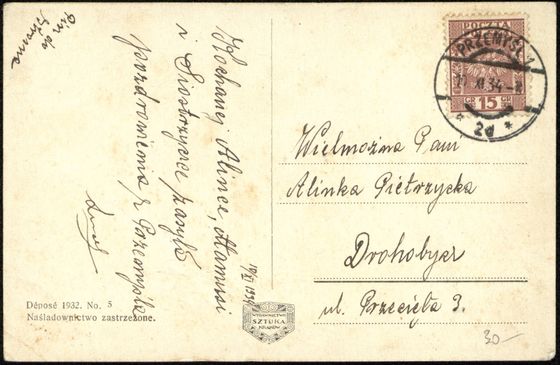 Kochanej Alince, Mamusi
i Siostrzyczce zasyła
pozdrowienia z Przemyśla
19/XI 1934
Dénosé 1932. No. 5
Naśladownictwo zastrzeżone.
WYDAWNICTWO
SZTUKA
KRAKÓW
POCZTA
PRZEMYŚL 1
XI.34
GR 15 GR
* 2d *
Wielmożna Pani
Alinka Pietrzycka
Drohobycz
ul. Przecięta 3.
30-